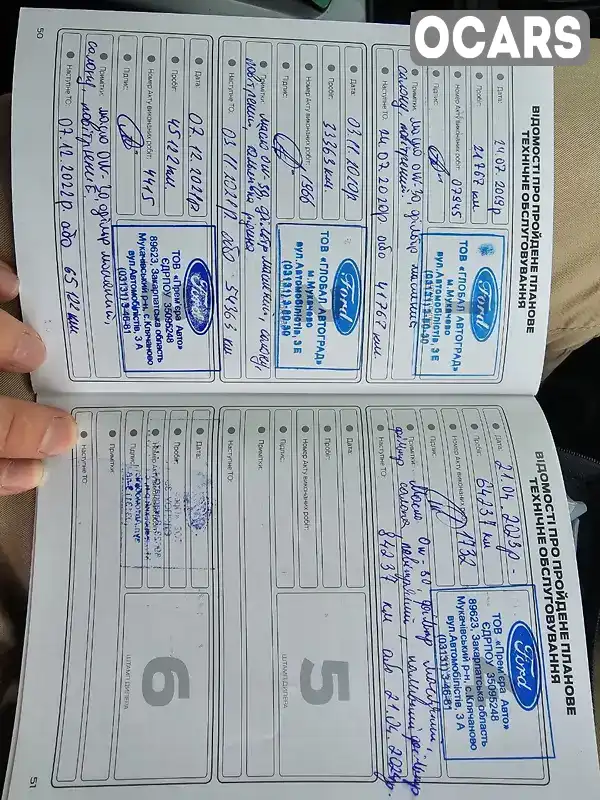 OCARS
50
ВІДОМОСТІ ПРО ПРОЙДЕНЕ ПЛАНОВЕ
ТЕХНІЧНЕ ОБСЛУГОВУВАННЯ
Дата: 24.07.2019р
Пробіг: 21767 км
Номер Акту виконаних робіт: 07945
Підпис:
Примітки: масло 0W-30, фільтр масляний
салону, повітряний.
Наступне ТО: 24.07.2020р або 41767 км.
Ford
ТОВ «ГЛОБАЛ АВТОГРАД»
м.Мукачево
вул.Автомобілістів, 3 Е
(03131) 3-80-30
Дата: 03.11.2020р
Пробіг: 33363 км
Номер Акту виконаних робіт: 1966
Підпис:
Примітки: масло 0W-30, фільтр масляний, салону,
повітряний,
Наступне ТО: 03.11.2021р або 54363 км
Ford
ТОВ «ГЛОБАЛ АВТОГРАД»
м.Мукачево
вул.Автомобілістів, 3 Е
(03131) 3-80-30
Дата: 07.12.2021р
Пробіг: 45122 км.
Номер Акту виконаних робіт: 4415
Підпис:
Примітки: масло 0W-30, фільтр масляний,
салону, повітряний.
Наступне ТО: 07.12.2022р. або 65122 км
Ford
ТОВ «Прем'єра Авто»
ЄДРПОУ 35095248
89623, Закарпатська область
Мукачівський р-н, с. Клячаново
вул.Автомобілістів, 3 А
(03131) 3-46-81
ВІДОМОСТІ ПРО ПРОЙДЕНЕ ПЛАНОВЕ
ТЕХНІЧНЕ ОБСЛУГОВУВАННЯ
Дата: 21.04.2023р.
Пробіг: 64237 км
Номер Акту виконаних робіт: 1132
Підпис:
Примітки: Масло 0W-30, фільтр масляний,
фільтр салона, повітряний, паливний фільтр
Наступне ТО: 84237 км або 21.04.2024р.
Ford
ТОВ «Прем'єра Авто»
ЄДРПОУ 35095248
89623, Закарпатська область
Мукачівський р-н, с. Клячаново
вул.Автомобілістів, 3 А
(03131) 3-46-81
Дата:
Пробіг:
Номер Акту виконаних робіт:
Підпис:
Примітки:
Наступне ТО:
5
ШТАМП ДИЛЕРА
Дата:
Пробіг:
Номер Акту виконаних робіт:
Підпис:
Примітки:
Наступне ТО:
6
ШТАМП ДИЛЕРА
51